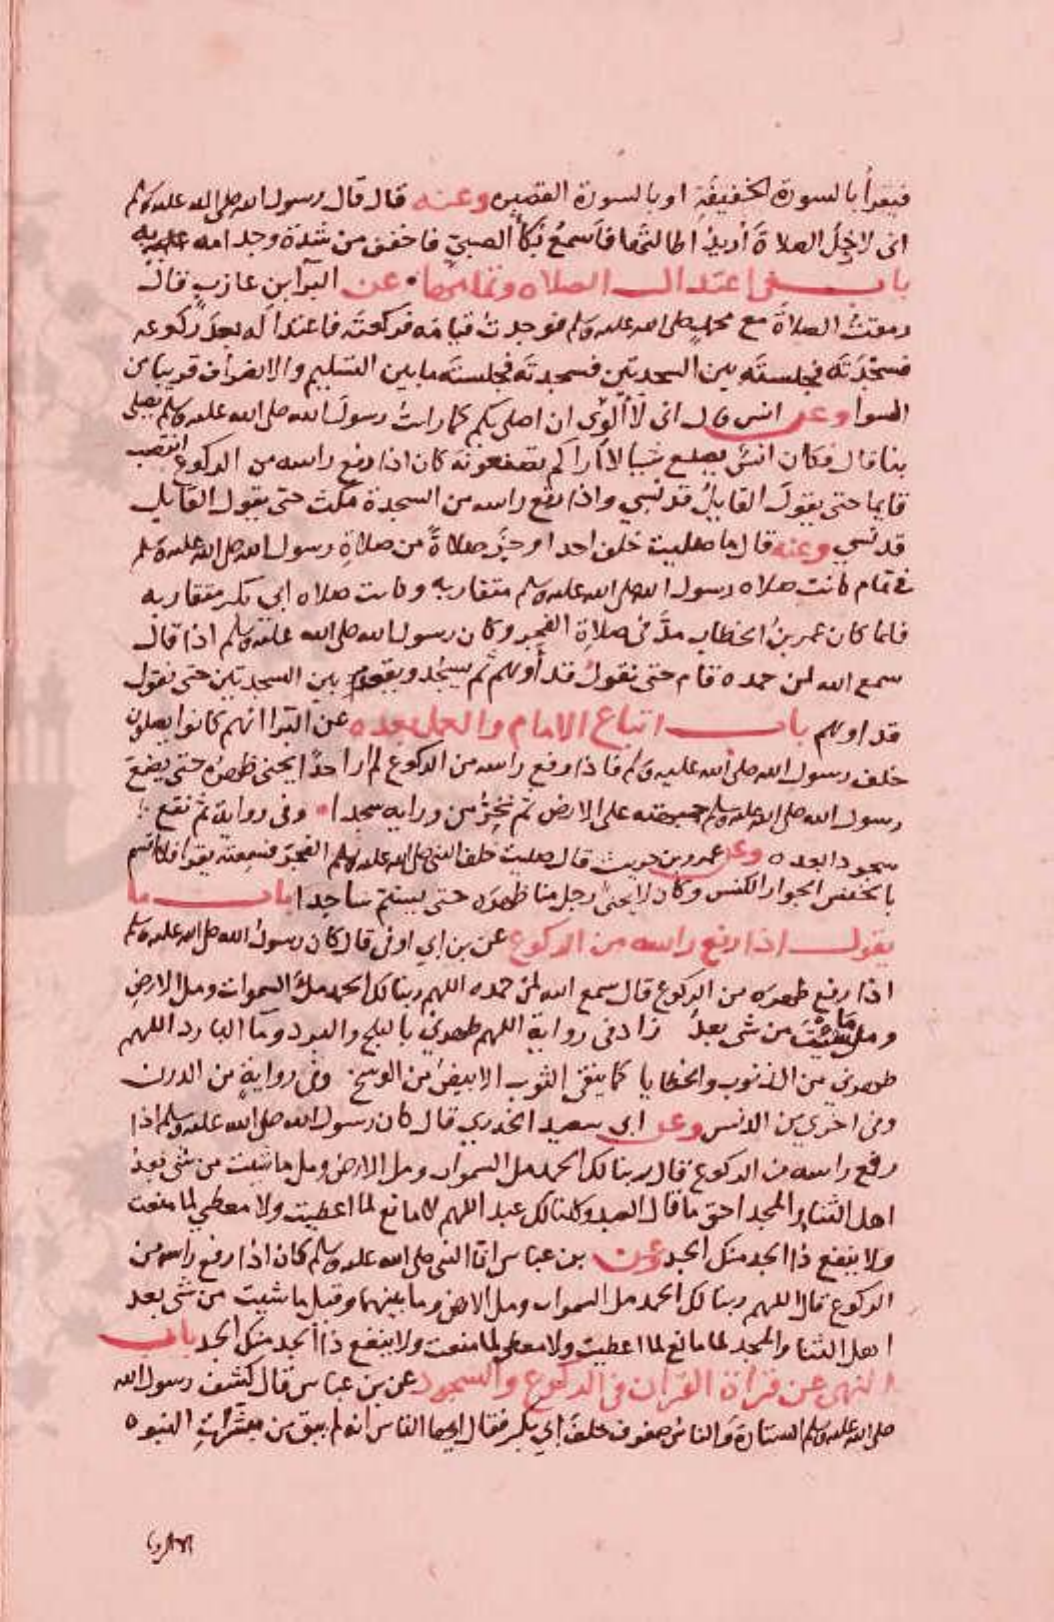 فيقرأ بالسورة الخفيفة او بالسورة القصيره وعنه قال قال رسول الله صلى الله عليه وسلم
انى لادخل الصلاة أريد اطالتها فأسمع بكاء الصبي فاخفف من شدة وجد امه به
باب فى اعتدال الصلاه وتمامها عن البرآ ابن عازب قال
رمقت الصلاة مع محمد صلى الله عليه وسلم فوجدت قيامه فركعته فاعتداله بعد ركوعه
فسجدته فجلسته بين السجدتين فسجدته فجلسته مابين التسليم والانصراف قريبا من
السوا وعن انس قال انى لا آلوا ان اصلى بكم كما رايت رسول الله صلى الله عليه وسلم يصلى
بنا قال فكان انس يصنع شيا لا أراكم تصنعونه كان اذا رفع راسه من الركوع انتصب
قايما حتى يقول القايل قد نسي واذا رفع راسه من السجدة مكث حتى يقول القايل
قد نسي وعنه قال ما صليت خلف احد اوجز صلاة من صلاة رسول الله صلى الله عليه وسلم
فى تمام كانت صلاه رسول الله صلى الله عليه وسلم متقاربه وكانت صلاه ابى بكر متقاربه
فلما كان عمر بن الخطاب مد فى صلاة الفجر وكان رسول الله صلى الله عليه وسلم اذا قال
سمع الله لمن حمده قام حتى نقول قد أوهم ثم يسجد ويقعد بين السجدتين حتى نقول
قد اوهم باب اتباع الامام والعمل بعده عن البرآ انهم كانوا يصلون
خلف رسول الله صلى الله عليه وسلم فاذا رفع راسه من الركوع لم ار احدا يحنى ظهره حتى يضع
رسول الله صلى الله عليه وسلم جبهته على الارض ثم نخر من ورايه سجدا وفى رواية ثم نقع
سجودا بعده وعن عمرو بن حريث قال صليت خلف النبى صلى الله عليه وسلم الفجر فسمعته يقرا فلا اقسم
بالخنس الجوار الكنس وكان لا يحنى رجل منا ظهره حتى يستتم ساجدا باب ما
يقول اذا رفع راسه من الركوع عن بن ابي اوفى قال كان رسول الله صلى الله عليه وسلم
اذا رفع ظهره من الركوع قال سمع الله لمن حمده اللهم ربنا لك الحمد ملأ السموات ومل الارض
ومل ما شيت من شى بعد زاد فى رواية اللهم طهرنى بالثلج والبرد ومآ البارد اللهم
طهرنى من الذنوب والخطايا كما ينقى الثوب الابيض من الوسخ وفى رواية من الدرن
وفى اخرى من الدنس وعن ابى سعيد الخدري قال كان رسول الله صلى الله عليه وسلم اذا
رفع راسه من الركوع قال ربنا لك الحمد مل السموات ومل الارض ومل ما شيت من شى بعد
اهل الثنا والمجد احق ما قال العبد وكلنا لك عبد اللهم لا مانع لما اعطيت ولا معطي لما منعت
ولا ينفع ذا الجد منك الجد وعن بن عباس ان النبى صلى الله عليه وسلم كان اذا رفع راسه من
الركوع قال اللهم ربنا لك الحمد مل السموات ومل الارض وما بينهما ومل ما شيت من شى بعد
اهل الثنا والمجد لا مانع لما اعطيت ولا معطى لما منعت ولا ينفع ذا الجد منك الجد باب
النهى عن قراة القران فى الركوع والسجود عن بن عباس قال كشف رسول الله
صلى الله عليه وسلم الستارة والناس صفوف خلف ابي بكر فقال ايها الناس انه لم يبق من مبشرات النبوه
الا الرويا